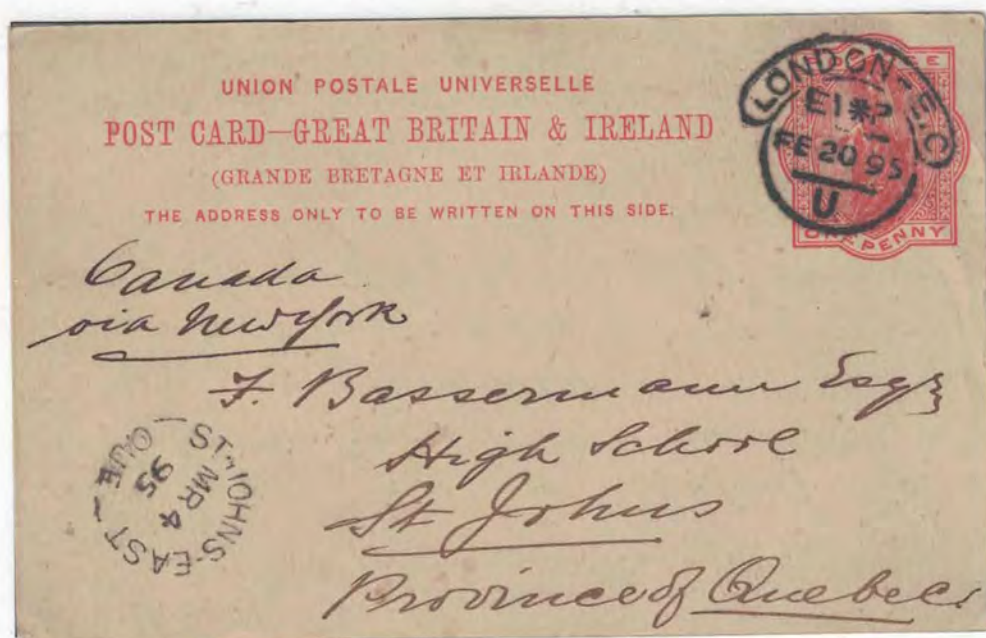 UNION POSTALE UNIVERSELLE
POST CARD—GREAT BRITAIN & IRELAND
(GRANDE BRETAGNE ET IRLANDE)
THE ADDRESS ONLY TO BE WRITTEN ON THIS SIDE.
ONE PENNY
LONDON-E.C
FE 20 95
U
Canada
via New York
F. Bassermann Esqr
High School
St Johns
Province of Quebec
ST-JOHNS-EAST QUE
MR 4
95